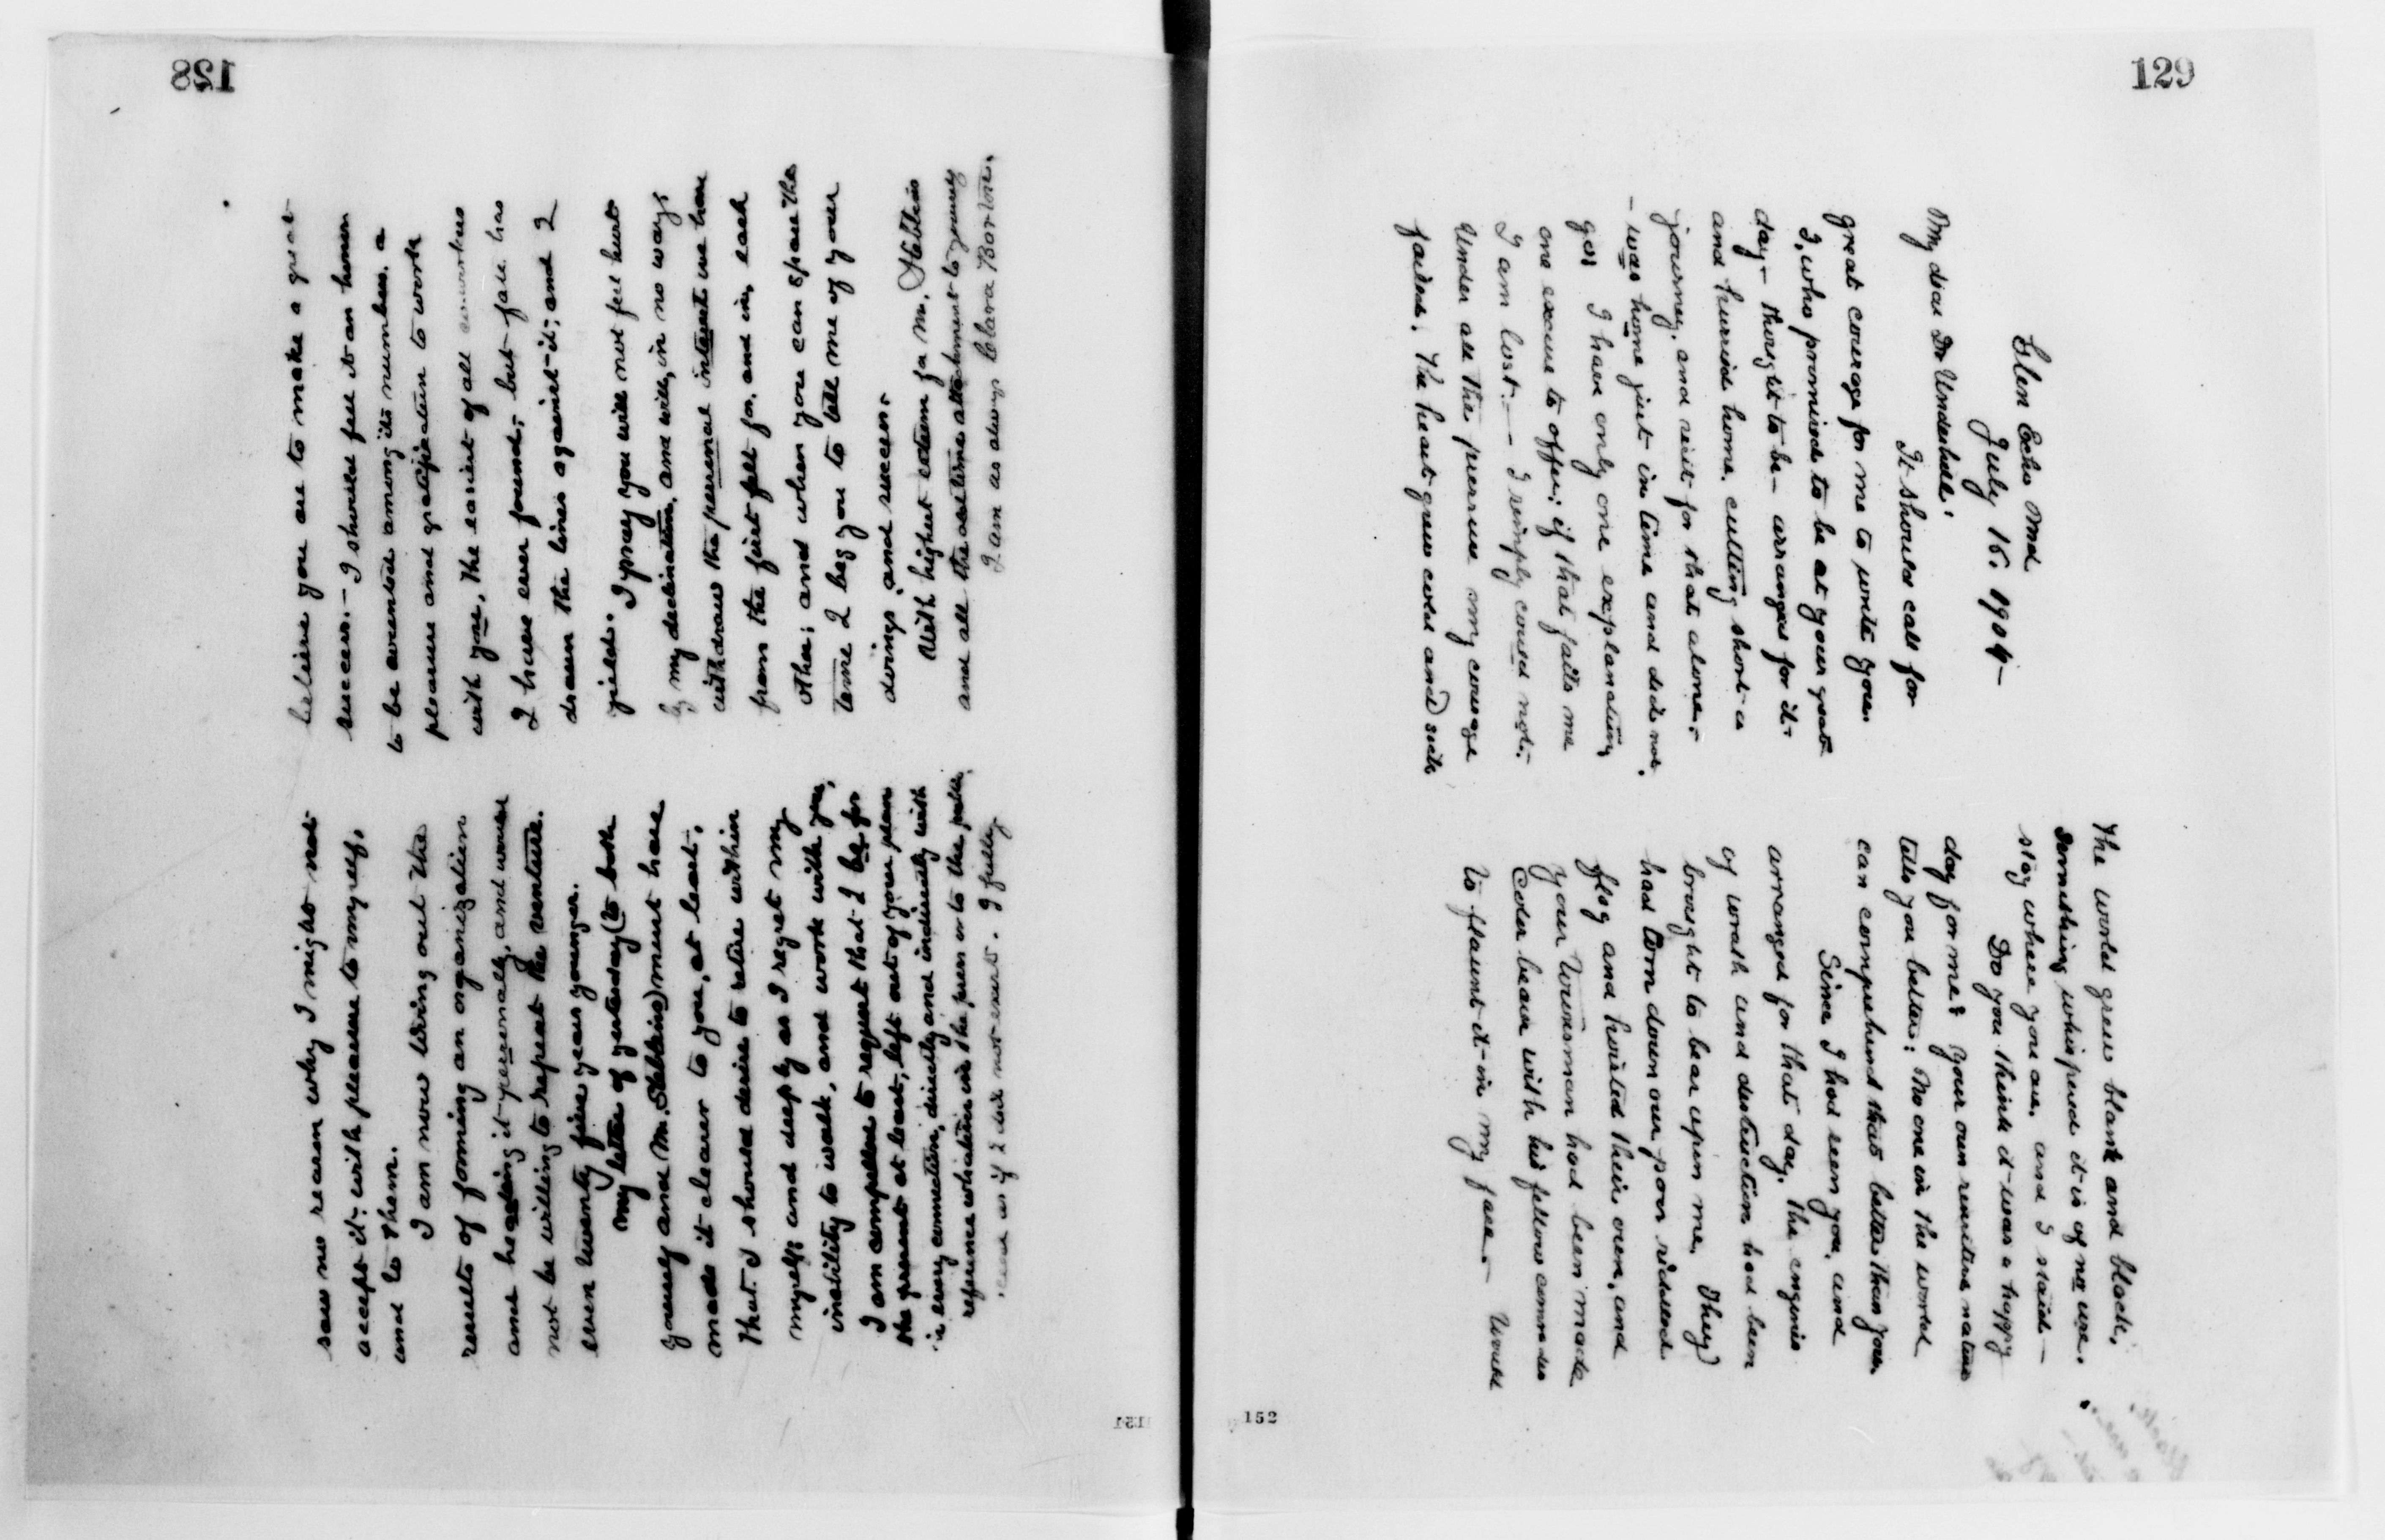 128
saw no reason why I might not
accept it; with pleasure to myself,
and to them.
I am now living out the
results of forming an organization
and heading it personally, and would
not be willing to repeat the venture.
even twenty five years younger.
My letter of yesterday (to both
yourself and Mr. Stebbins) must have
made it clearer to you, at least,
that I should desire to retire within
myself; and deeply as I regret my
inability to walk, and work with you,
I am compelled to request that I be for
the present at least, left out of your plan
in every connection, directly and indirectly with
reference whatever in the press or to the public,
as if I did not exist. I fully
believe you are to make a great
success. - I should feel it an honor
to be counted among its numbers, a
pleasure and gratification to work
with you, the easiest of all coworkers
I have ever found; - but fate has
drawn the lines against it; and I
yield.
I pray you will not feel hurt
by my declination, and will, in no ways
withdraw the personal interest we have
from the first felt for, and in, each
other; and when you can spare the
time I beg you to tell me of your
doings, and success.
With highest esteem for Mr. Stebbins
and all the oldtime attachment to yourself
I am as always Clara Barton.
151
129
Glen Echo Md
July 16. 1904 -
My dear Dr Underhill:
It should call for
great courage for me to write you.
I, who promised to be at your great
day - thought to be - arranged for it -
and hurried home, cutting short a
journey, and visit for that alone, -
- was home just in time and did not
go! I have only one explanation,
one excuse to offer; if that fails me
I am lost. - I simply could not.
Under all the pressure my courage
failed. The heart grew cold and sick
The world grew blank and black,
Something whispered it is of no use.
stay where you are, and I staid -
Do you think it was a happy
day for me? Your own sensitive nature
tells you better: No one in the world
can comprehend that better than you.
Since I had seen you, and
arranged for that day, the engines
of wrath and destruction had been
brought to bear upon me. They
had torn down our poor riddled
flag and hoisted their own, and
your Wiersman had been made
Color bearer with his fellow comrades
to flaunt it - in my face. - Would
152